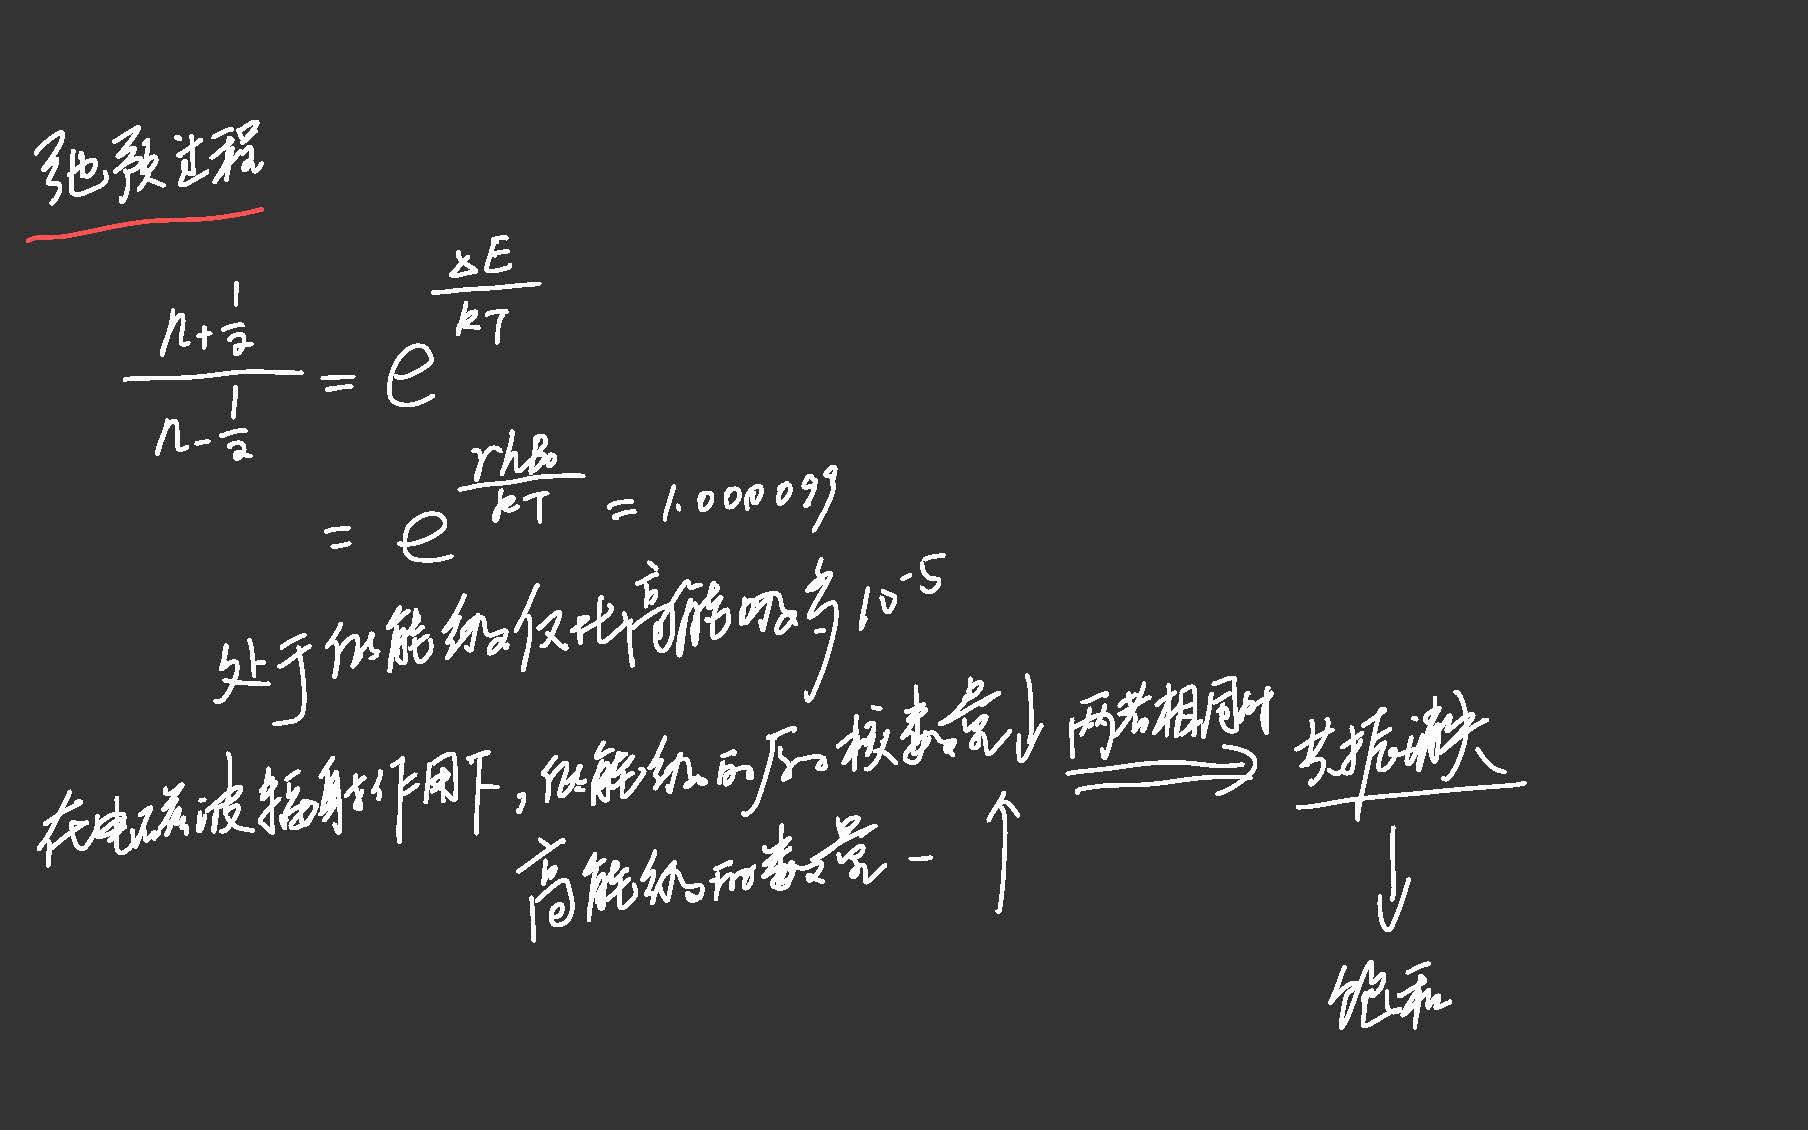 弛豫过程
n+1/2 / n-1/2 = e^(ΔE/kT)
= e^(rhB₀/kT) = 1.000099
处于低能级仅比高能级多10⁻⁵
在电磁波辐射作用下，低能级的原子核数量↓ 两者相同时 ⇒ 共振消失
高能级的数量-↑ ↓
饱和